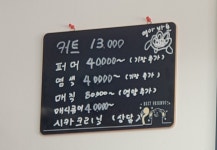 커트 13.000
퍼머 40000~ (기장추가)
염색 40000~ (기장추가)
매직 80,000~ (기장추가)
매니큐어 40000~
시카크리닉 (상담)